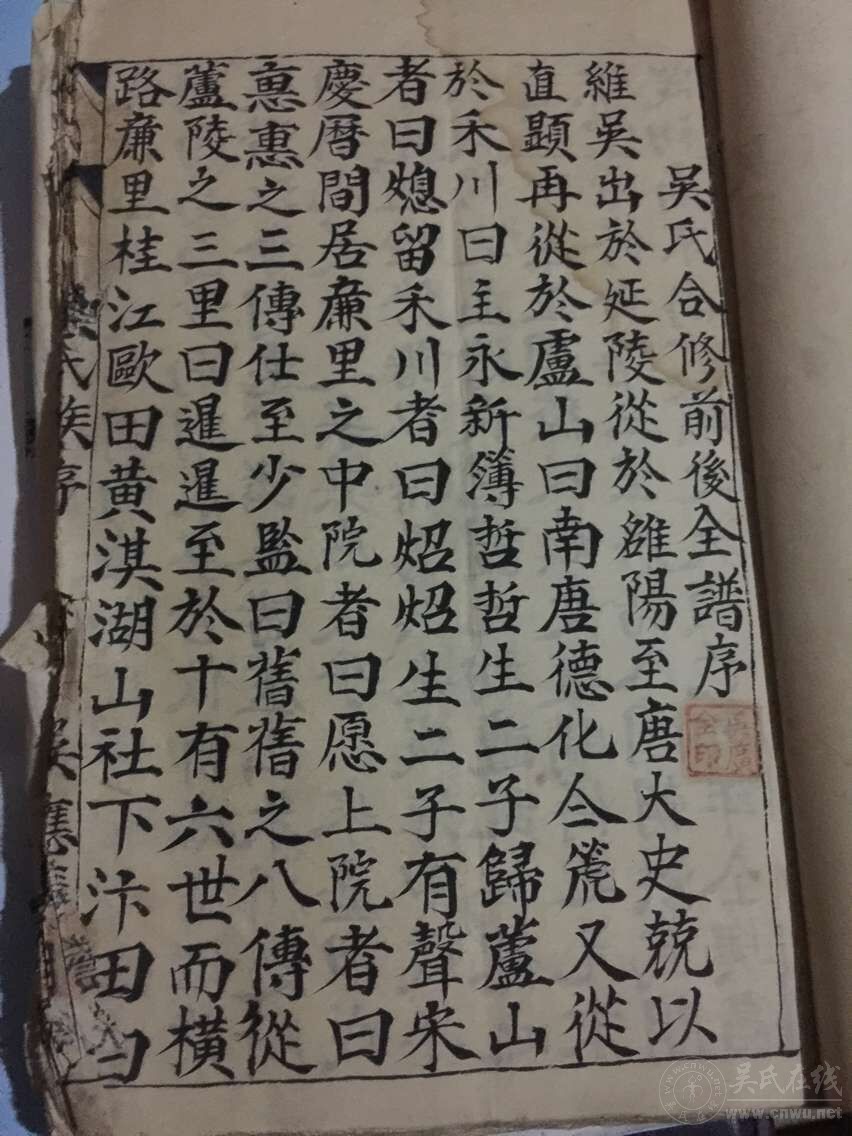 吳氏合修前後全譜序
維吳出於延陵從於雒陽至唐大史兢以
直顯再從於盧山曰南唐德化令箎又從
於禾川曰主永新簿哲哲生二子歸蘆山
者曰媳留禾川者曰炤炤生二子有聲宋
慶曆間居亷里之中院者曰愿上院者曰
惪惠之三傳仕至少監曰舊舊之八傳從
蘆陵之三里曰暹暹至於十有六世而橫
路亷里桂江歐田黃淇湖山社下汴田曰
氏族序
吳應
吳氏在线
www.cnwu.net